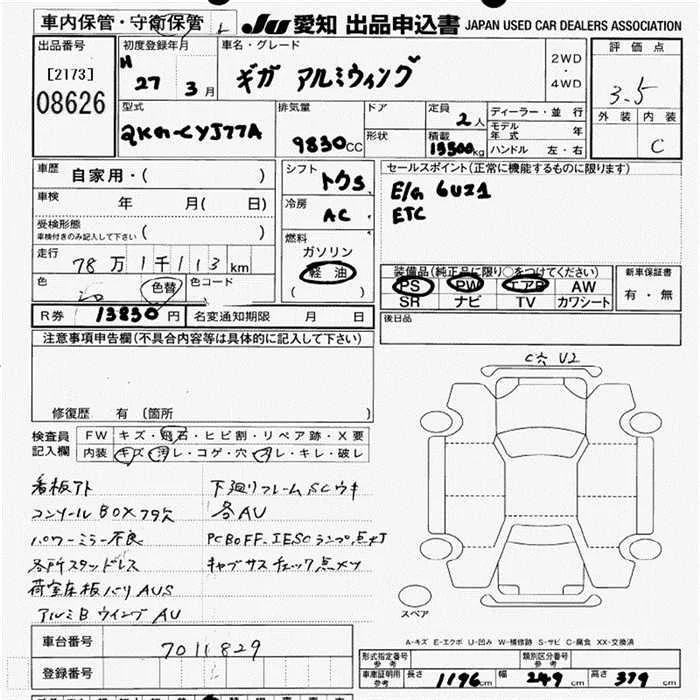 車内保管・守衛保管
JU 愛知 出品申込書 JAPAN USED CAR DEALERS ASSOCIATION
出品番号 [2173] 08626
初度登録年月 H 27 3月
車名・グレード ギガ アルミウィング
2WD・4WD
評価点 3.5
外装 内装 C
型式 QKG-CYJ77A
排気量 9830cc
ドア 形状
定員 2人
積載 13300kg
ディーラー・並行
モデル年式 年
ハンドル 左・右
車歴 自家用・( )
車検 年 月( 日)
受検形態 車検付きのみ記入して下さい ( )
走行 78万1千113km
色 色替 色コード
R券 13830円 名変通知期限 月 日
シフト
冷房 AC
燃料 ガソリン 軽油 ( )
セールスポイント(正常に機能するものに限ります)
E/G 6UZ1
ETC
装備品(純正品に限り○をつけてください)
PS PW エアB AW
SR ナビ TV カワシート
新車保証書 有・無
後日品
注意事項申告欄(不具合内容等は具体的に記入して下さい)
修復歴 有 (箇所 )
検査員記入欄
FW キズ・飛石・ヒビ割・リペア跡・X要
内装 キズ・汚レ・コゲ・穴・スレ・キレ・破レ
看板アト
コンソールBOXフタ欠
パワーミラー不良
各所スタッドレス
荷室床板バリAUS
アルミBウイングAU
下廻りフレームSCウキ
各AU
PCBOFF.IESCランプ点灯
キャブサスチェック点メツ
C穴 U2
スペア
A-キズ E-エクボ U-凹み W-補修跡 S-サビ C-腐食 XX-交換済
車台番号 7011829
登録番号
形式指定番号 参考
類別区分番号 参考
車庫証明用 参考 長さ 1196cm 幅 249cm 高さ 379cm